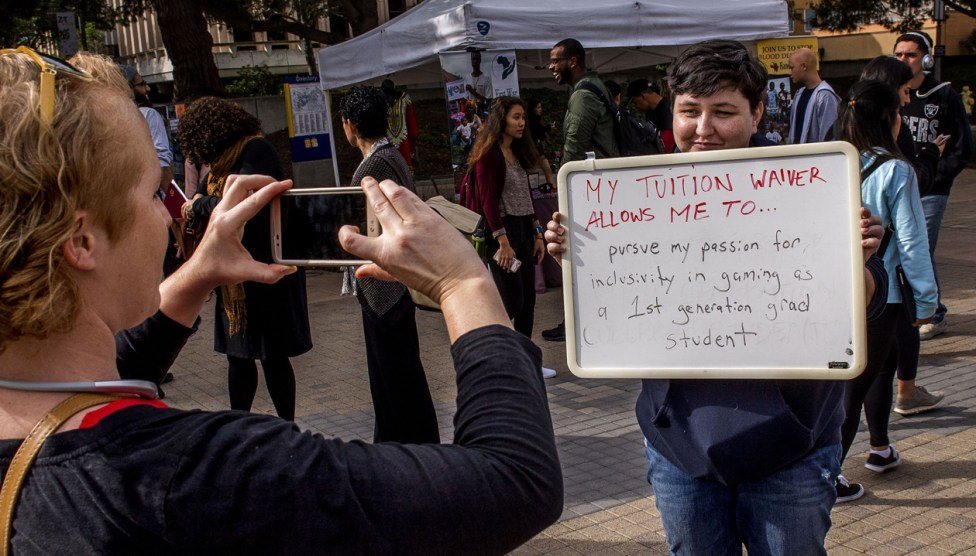 MY TUITION WAIVER
ALLOWS ME TO...
pursue my passion for
inclusivity in gaming as
a 1st generation grad
student
RAIDERS